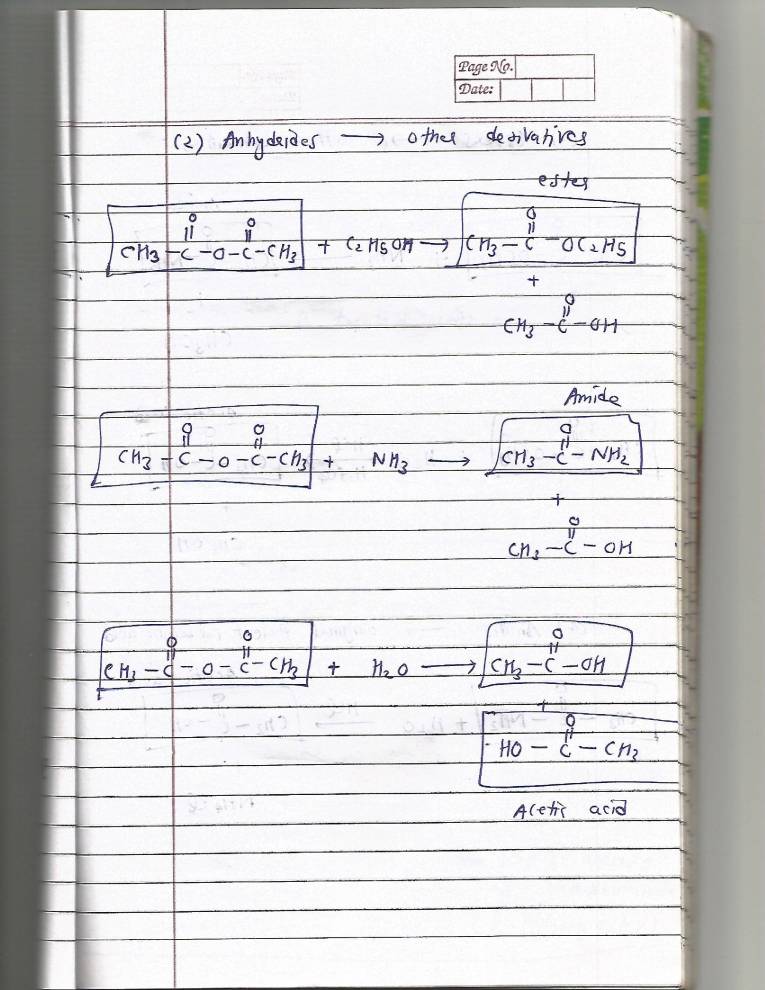 Page No.
Date:
(2) Anhydrides → other derivatives
ester
O O O
|| || ||
CH3 - C - O - C - CH3 + C2H5OH → CH3 - C - OC2H5
+
O
||
CH3 - C - OH
Amide
O O O
|| || ||
CH3 - C - O - C - CH3 + NH3 → CH3 - C - NH2
+
O
||
CH3 - C - OH
O O O
|| || ||
CH3 - C - O - C - CH3 + H2O → CH3 - C - OH
+
O
||
HO - C - CH3
Acetic acid